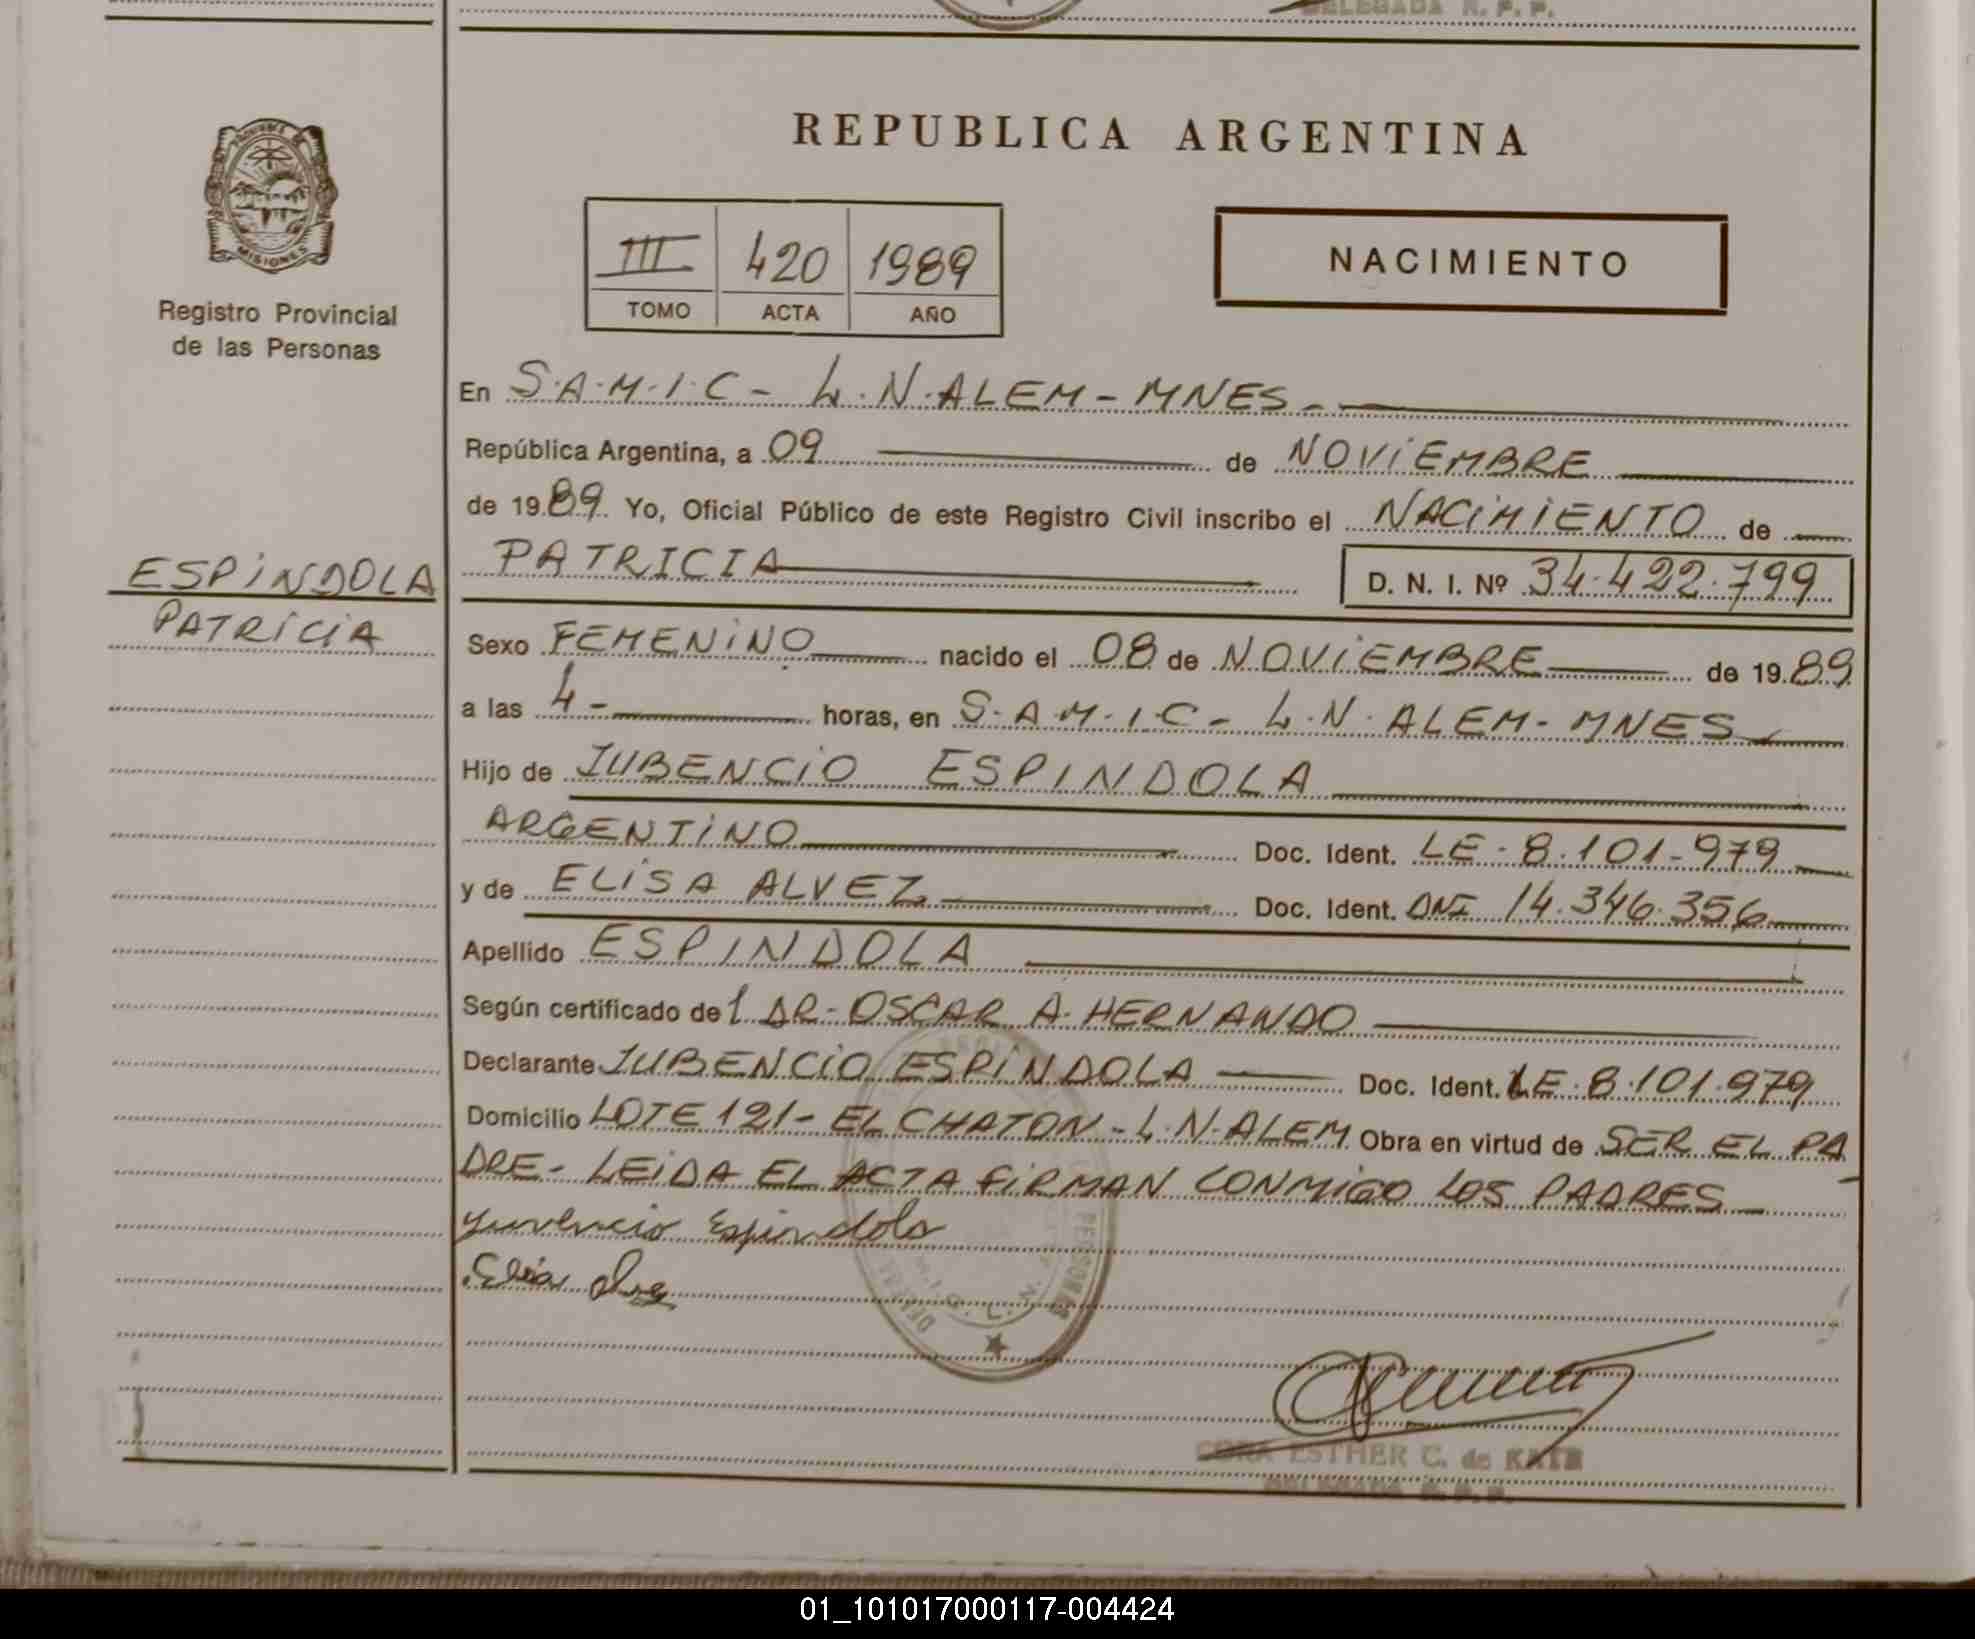 DELEGADA R. P. P.
PROVINCIA DE
MISIONES
Registro Provincial
de las Personas
ESPiNDOLA
PATRiCiA
REPUBLICA ARGENTINA
III 420 1989
TOMO ACTA AÑO
NACIMIENTO
En S.A.M.I.C - L.N.ALEM - MNES -
República Argentina, a 09 de NOViEMBRE
de 1989. Yo, Oficial Público de este Registro Civil inscribo el NACiMiENTO de
PATRICIA D. N. I. Nº 34.422.799
Sexo FEMENiNO nacido el 08 de NOViEMBRE de 1989
a las 4 - horas, en S.A.M.I.C - L.N. ALEM - MNES
Hijo de JUBENCiO ESPINDOLA
ARGENTiNO Doc. Ident. LE - 8.101-979
y de ELiSA ALVEZ Doc. Ident. DNI 14.346.356
Apellido ESPINDOLA
Según certificado del DR - OSCAR A. HERNANDO
Declarante JUBENCiO ESPiNDOLA Doc. Ident. LE. 8.101.979
Domicilio LOTE 121 - EL CHATON - L.N.ALEM Obra en virtud de SER EL PA
DRE - LEiDA EL ACTA FiRMAN CONMiGO LOS PADRES
Yuvencio Espindola
CORA ESTHER C. de KATZ
DELEGADA R. P. P.
01_101017000117-004424